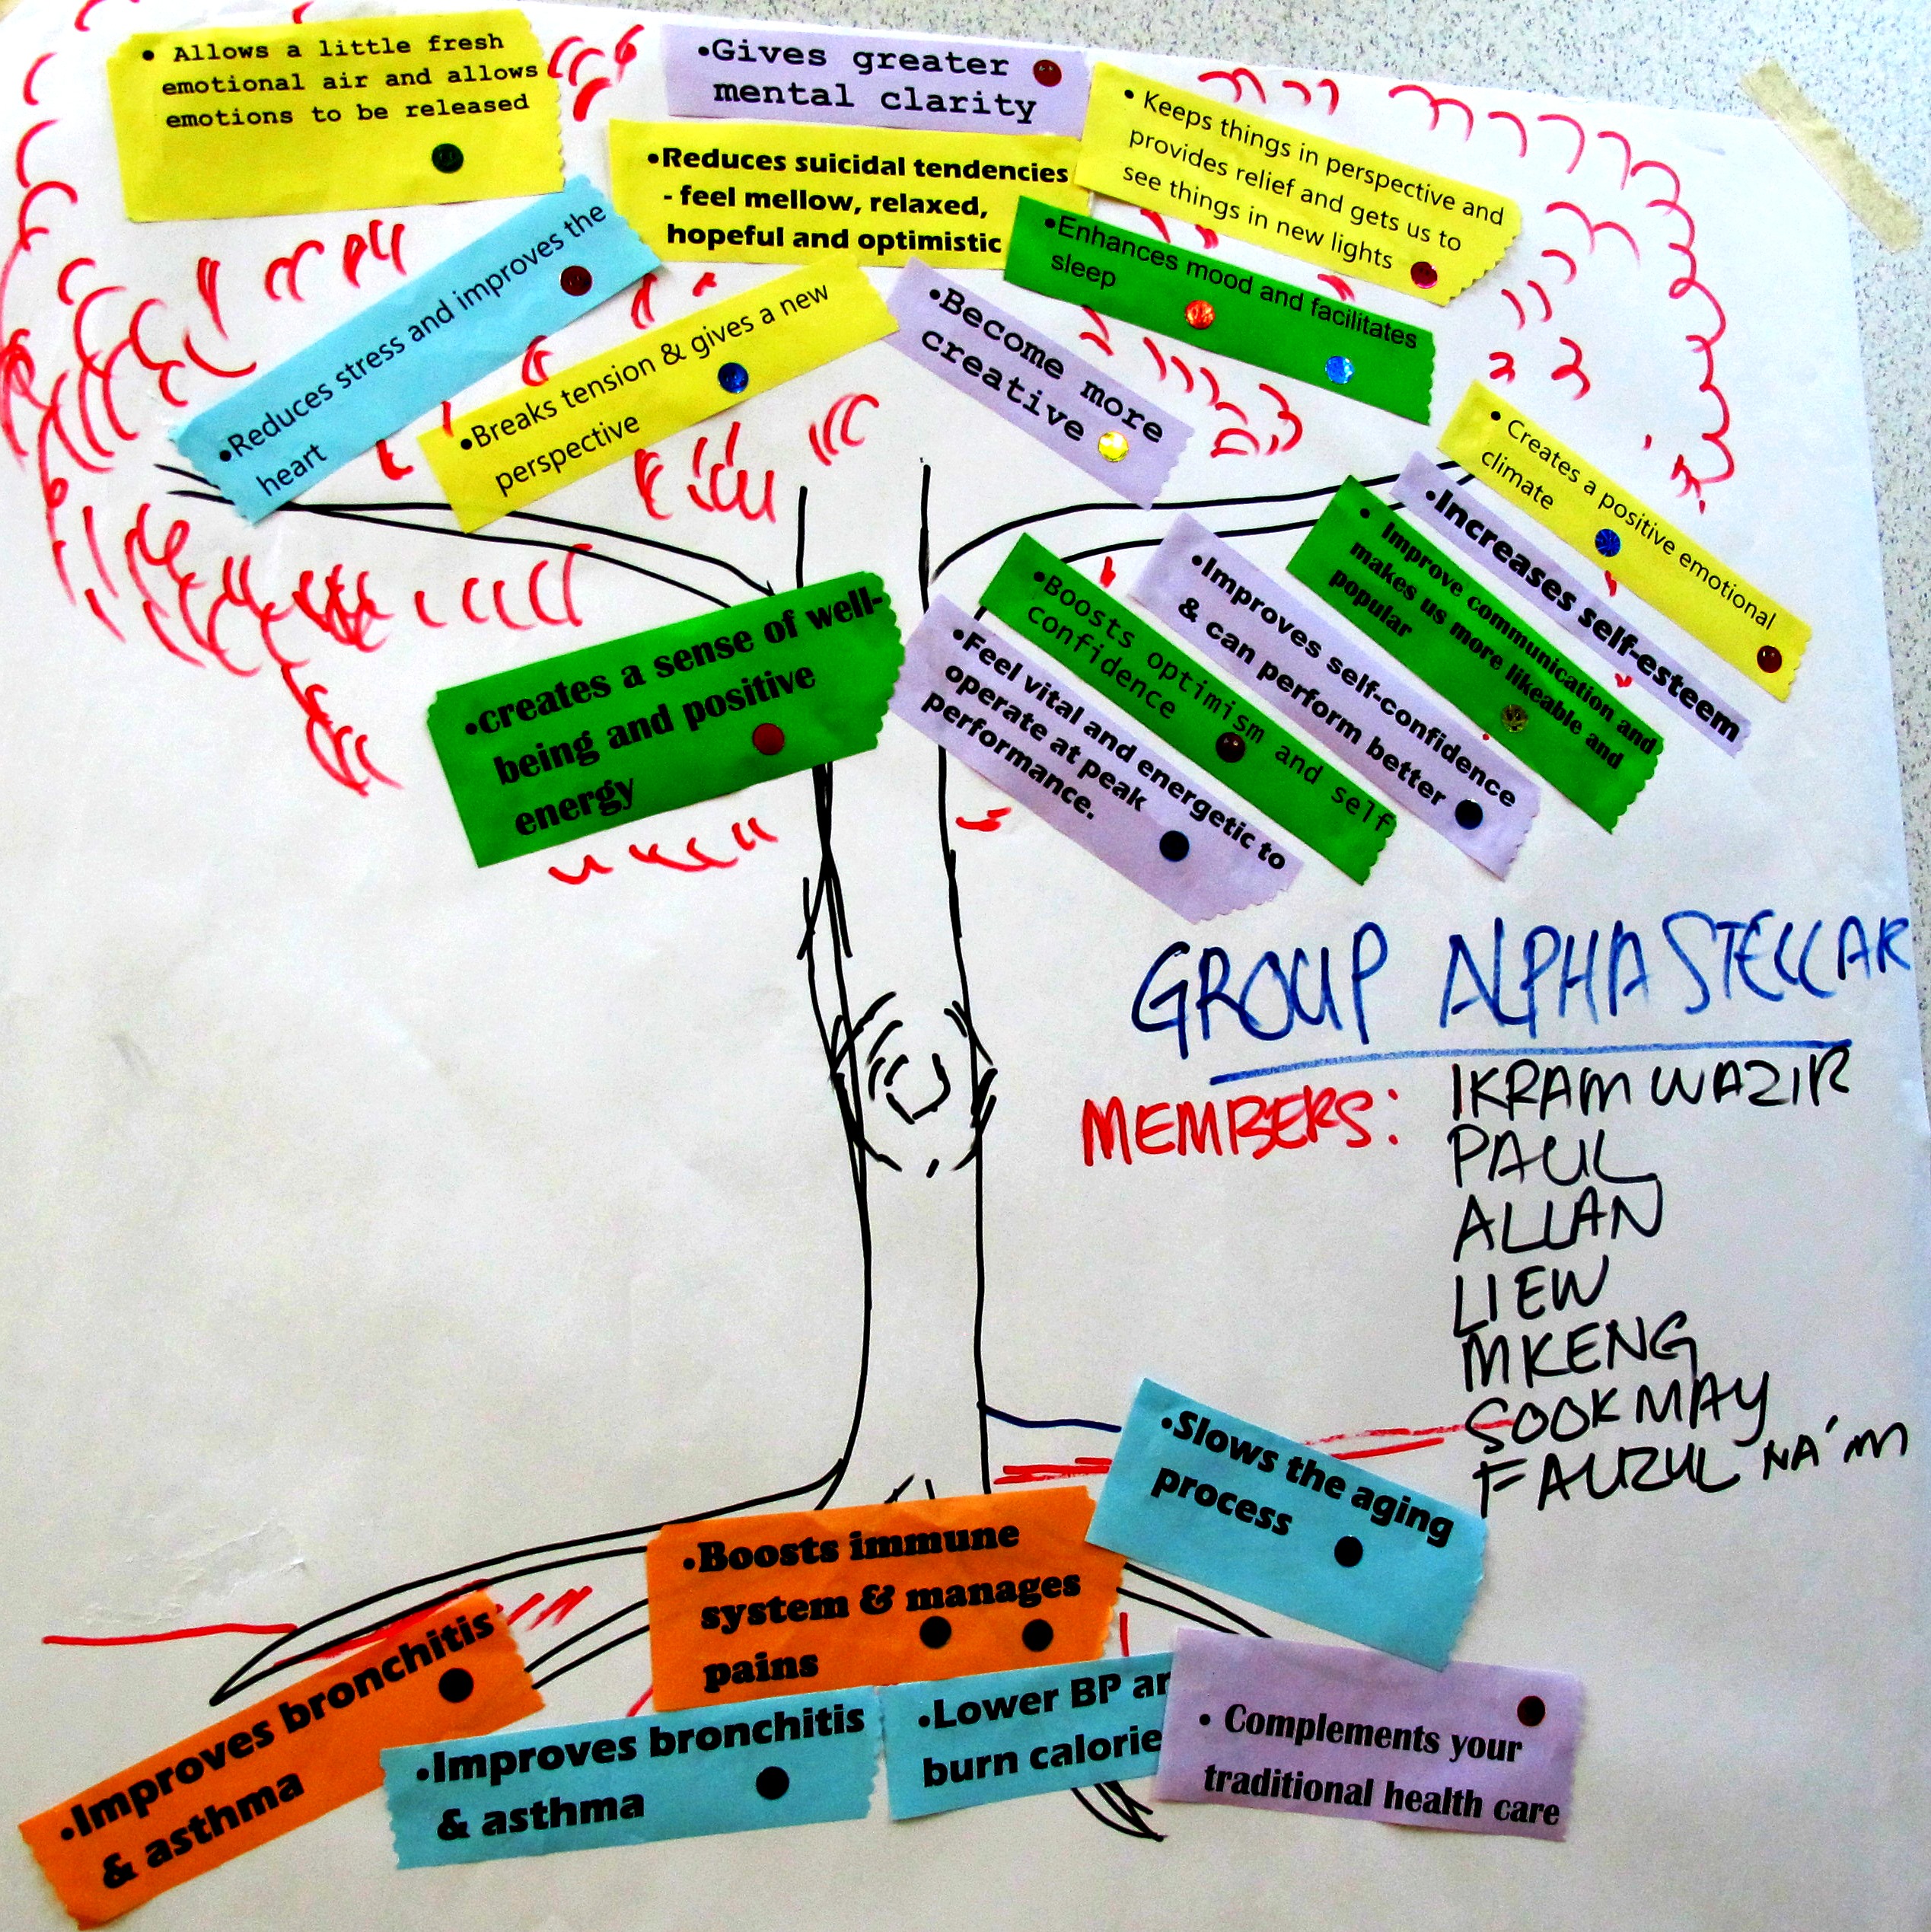 • Allows a little fresh
emotional air and allows
emotions to be released
•Gives greater
mental clarity
•Reduces suicidal tendencies
- feel mellow, relaxed,
hopeful and optimistic
• Keeps things in perspective and
provides relief and gets us to
see things in new lights
•Enhances mood and facilitates
sleep
•Reduces stress and improves the
heart
•Breaks tension & gives a new
perspective
•Become more
creative
• Creates a positive emotional
climate
•Increases self-esteem
• Improve communication and
makes us more likeable and
popular
•Improves self-confidence
& can perform better
•Boosts optimism and self
confidence
•Feel vital and energetic to
operate at peak
performance.
•creates a sense of well-
being and positive
energy
GROUP ALPHA STELLAR
MEMBERS:
IKRAM WAZIR
PAUL
ALLAN
LIEW
MKENG
SOOK MAY
FAUZUL NA'IM
•Slows the aging
process
•Boosts immune
system & manages
pains
•Improves bronchitis
& asthma
•Improves bronchitis
& asthma
•Lower BP an
burn calorie
• Complements your
traditional health care